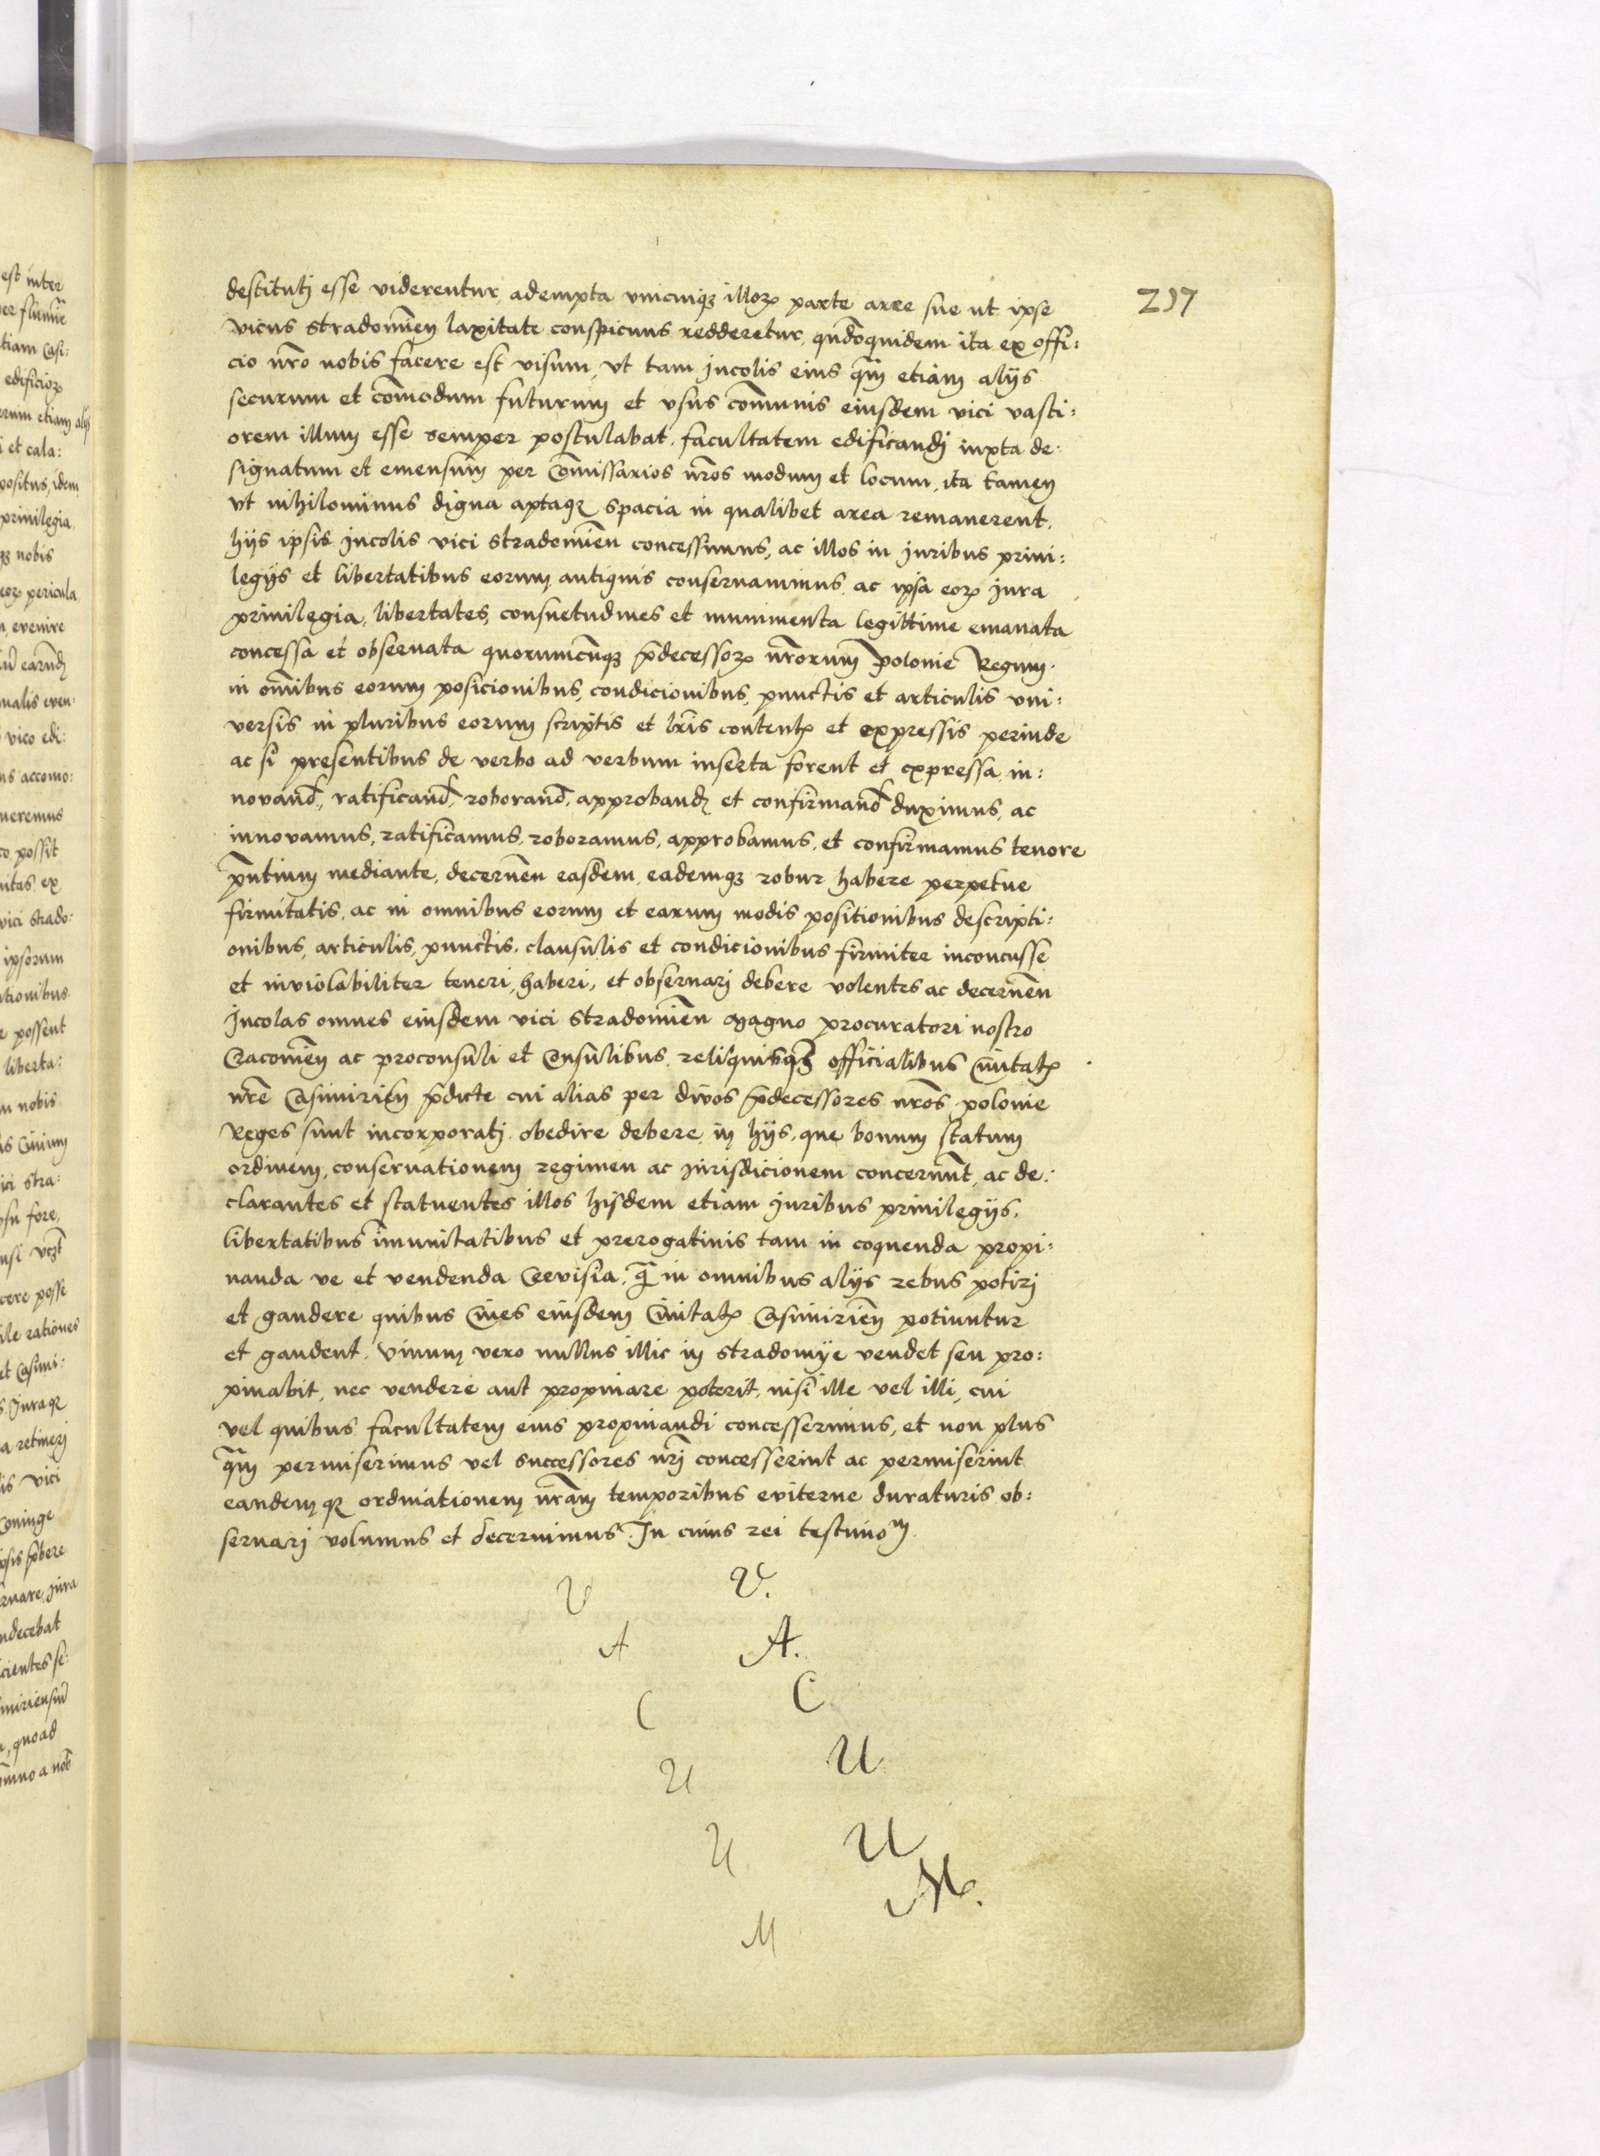 217
destitutj esse viderentur adempta vnicuiqꝫ illoꝝ parte aree sue ut ipse
vicus stradomien laxitate conspicuus redderetur, quādoquidem ita ex offi:
cio nr̄o nobis facere est visum, vt tam jncolis eius q̄m etiam alijs
securum et cōmodum futurum et vsus cōmunis eiusdem vici vasti:
orem illum esse semper postulabat, facultatem edificandj iuxta de:
signatum et emensum per Cōmissarios nr̄os modum et locum, ita tamen
vt nihilominus digna aptaqꝫ spacia in qualibet area remanerent,
hijs ipsis jncolis vici stradomien̄ concessimus, ac illos in juribus priui:
legijs et libertatibus eorum antiquis conseruauimus, ac ipsa eoꝝ jura
priuilegia, libertates, consuetudines et munimenta legittime emanata
concessa et obseruata quorumcunqꝫ p̄decessoꝝ nr̄orum Polonie Regum
in om̄ibus eorum posicionibus, condicionibus, punctis et articulis vni:
versis in pluribus eorum scriptis et lr̄is contentꝭ et expressis perinde
ac si presentibus de verbo ad verbum inserta forent et expressa in:
nouand̄, ratificand̄, roborand̄, approbandꝭ et confirmand̄ duximus, ac
innouamus, ratificamus, roboramus, approbamus, et confirmamus tenore
p̄ntium mediante, decernen̄ easdem, eademqꝫ robur habere perpetue
firmitatis, ac in omnibus eorum et earum modis positionibus descripti:
onibus, articulis, punctis, clausulis et condicionibus firmiter inconcusse
et inviolabiliter teneri, haberi, et obseruarj debere volentes ac decernen̄
Jncolas omnes eiusdem vici stradomien̄ Magno procuratori nostro
Cracouien̄ ac proconsuli et Consulibus reliquisqꝫ officialibus Ciuitatꝭ
nr̄e Casimirien̄ p̄dicte cui alias per diuos p̄decessores nr̄os polonie
Reges sunt incorporatj obedire debere in hijs, que bonum statum
ordinem, conseruationem regimen ac jurisdicionem concernunt, ac de:
clarantes et statuentes illos hisdem etiam juribus priuilegijs,
libertatibus īmunitatibus et prerogatiuis tam in coquenda propi:
nanda ve et vendenda Ceruisia, q̄ in omnibus alijs rebus potirj
et gaudere quibus Ciues eiusdem Ciuitatꝭ Casimirien̄ potiuntur
et gaudent. Vinum vero nullus illic in stradomye vendet seu pro:
pinabit, nec vendere aut propinare poterit, nisi ille vel illi, cui
vel quibus facultatem eius propinandi concesserimus, et non plus
q̄m permiserimus vel successores nr̄j concesserint ac permiserint
eandemqꝫ ordinationem nr̄am temporibus eviterne duraturis ob:
seruarj volumus et decernimus. In cuius rei testimoᵐ
V V.
A A.
C C
U U
U U
M M.
est inter
tiam Casi:
edificioꝝ
erum etiam alijs
i et cala:
positus, idem
priuilegia
qꝫ nobis
eoꝝ pericula
evenire
malis even:
vico edi:
us accomo:
possit
vici strado:
ipsorum
possent
liberta:
nobis
ici stra:
fore,
cere posse
rationes
et Casimi:
Juraqꝫ
a retinerj
is vici
ndecebat
quoad